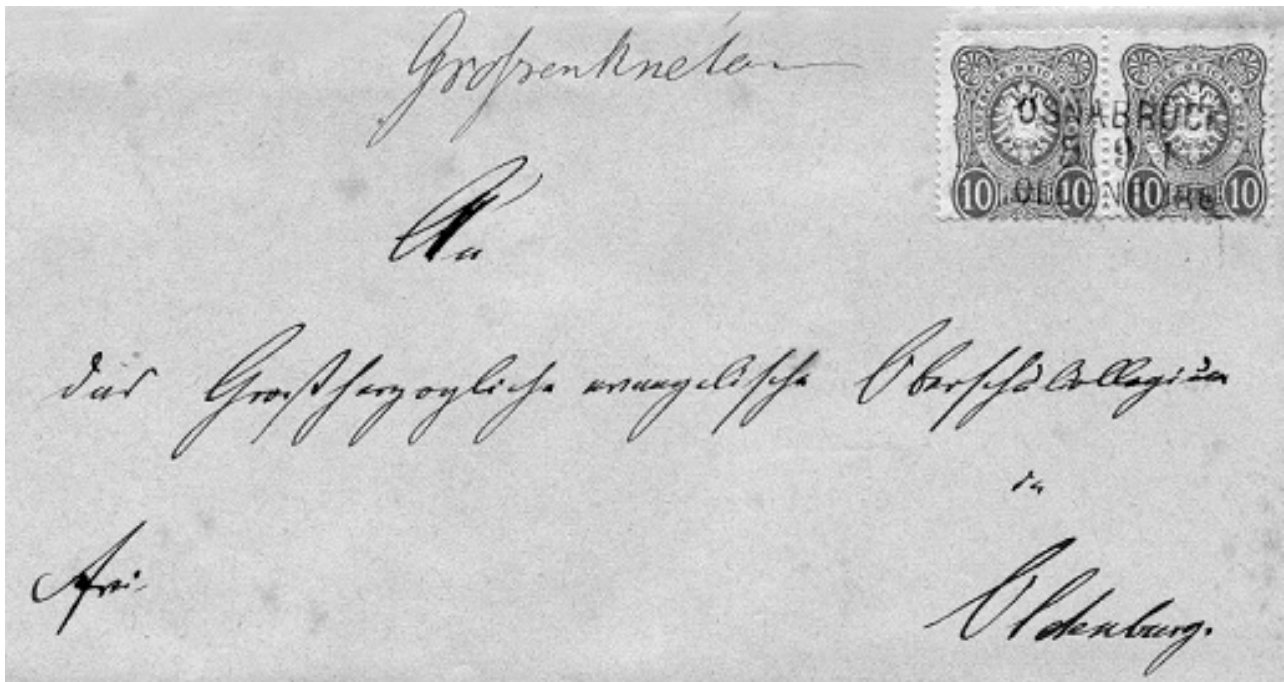 Großenkneten
OSNABRÜCK
5 9 1
OLDENBURG
10 10 10 10
An
das Großherzogliche evangelische Oberschulcollegium
in
Oldenburg.
Frei